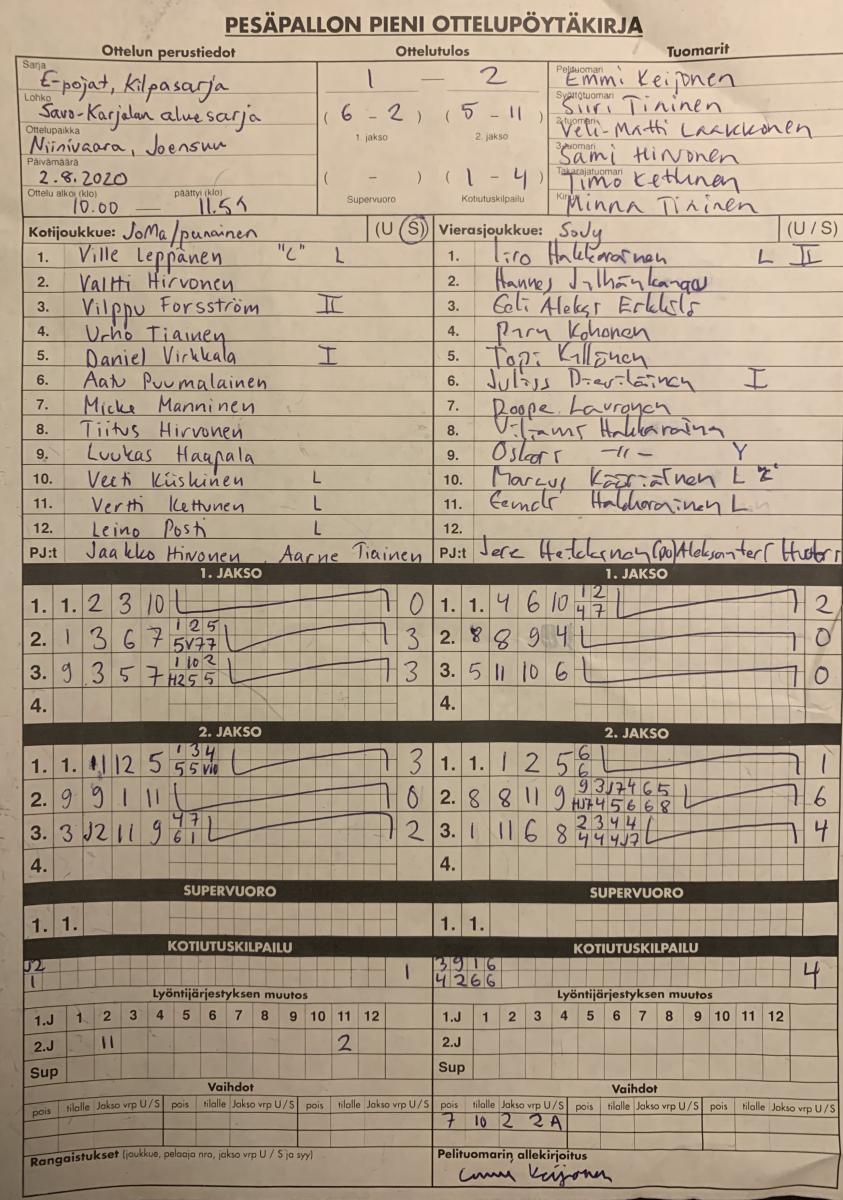 PESÄPALLON PIENI OTTELUPÖYTÄKIRJA
Ottelun perustiedot Ottelutulos Tuomarit
Sarja
E-pojat, Kilpasarja
Lohko
Savo-Karjalan aluesarja
Ottelupaikka
Niinivaara, Joensuu
Päivämäärä
2.8.2020
Ottelu alkoi (klo) päättyi (klo)
10.00 — 11.54
1 — 2
( 6 - 2 ) ( 5 - 11 )
1. jakso 2. jakso
( - ) ( 1 - 4 )
Supervuoro Kotiutuskilpailu
Pelituomari
Emmi Keijonen
Syöttötuomari
Siiri Tiainen
2-tuomari
Veli-Matti Laakkonen
3-tuomari
Sami Hirvonen
Takarajatuomari
Timo Kettunen
Minna Tiainen
Kotijoukkue: JoMa/punainen (U / S)
1. Ville Leppänen "C" L
2. Valtti Hirvonen
3. Vilppu Forsström II
4. Urho Tiainen
5. Daniel Virkkala I
6. Aatu Puumalainen
7. Micke Manninen
8. Tiitus Hirvonen
9. Luukas Haapala
10. Veeti Kiiskinen L
11. Vertti Kettunen L
12. Leino Posti L
PJ:t Jaakko Hirvonen Aarne Tiainen
Vierasjoukkue: SoJy (U / S)
1. Iiro Hakkarainen L II
2. Hannes
3. Eeli Aleksi Erkkilä
4. Kohonen
5. Topi
6. Julius I
7. Roope Lauronen
8. Viljami Hakkarainen
9. Oskari -11- Y
10. Marcus Kääriäinen L
11. Eemeli Hakkarainen L
12.
PJ:t Jere (po) Aleksanteri
1. JAKSO
1. 1. 2 3 10 0
1 2 5
2. 1 3 6 7 5 V7 7 3
1 10 2
3. 9 3 5 7 H2 5 5 3
4.
1. JAKSO
1 2
1. 1. 4 6 10 4 7 2
2. 8 8 9 4 0
3. 5 11 10 6 0
4.
2. JAKSO
1 3 4
1. 1. 11 12 5 5 5 V10 3
2. 9 9 1 11 0
4 7
3. 3 J2 11 9 6 1 2
4.
2. JAKSO
6
1. 1. 1 2 5 6 1
9 3 J7 4 6 5
2. 8 8 11 9 HJ7 4 5 6 6 8 6
2 3 4 4
3. 1 11 6 8 4 4 4 J7 4
4.
SUPERVUORO
1. 1.
SUPERVUORO
1. 1.
KOTIUTUSKILPAILU
J2
1 1
KOTIUTUSKILPAILU
3 9 1 6
4 2 6 6 4
Lyöntijärjestyksen muutos
1.J 1 2 3 4 5 6 7 8 9 10 11 12
2.J 11 2
Sup
Lyöntijärjestyksen muutos
1.J 1 2 3 4 5 6 7 8 9 10 11 12
2.J
Sup
Vaihdot
pois tilalle Jakso vrp U / S pois tilalle Jakso vrp U / S pois tilalle Jakso vrp U / S
Vaihdot
pois tilalle Jakso vrp U / S pois tilalle Jakso vrp U / S pois tilalle Jakso vrp U / S
7 10 2 2A
Rangaistukset (joukkue, pelaaja nro, jakso vrp U / S ja syy)
Pelituomarin allekirjoitus
Emmi Keijonen